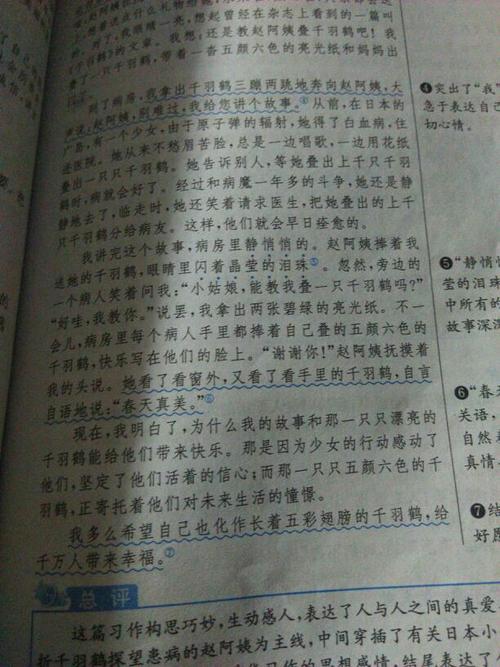 想着该送什么礼物给她
到了,我眼睛一亮,想起曾经在杂志上看到的一篇叫
《千羽鹤》的文章。我想:还是教赵阿姨叠千羽鹤吧!我
叠了一只千羽鹤,带着一沓五颜六色的亮光纸和妈妈出
到了病房,我拿出千羽鹤三蹦两跳地奔向赵阿姨,大
声说:赵阿姨,别难过,我给您讲个故事。④从前,在日本的
广岛,有一个少女,由于原子弹的辐射,她得了白血病,住
进医院。她从来不愁眉苦脸,总是一边唱歌,一边用花纸
叠出一只只千羽鹤。她告诉别人,等她叠出上千只千羽
鹤时,病就会好了。经过和病魔一年多的斗争,她还是静
静地去了,临走时,她还笑着请求医生,把她叠出的上千
只千羽鹤分给病友。这样,他们就会早日痊愈的。
我讲完这个故事,病房里静悄悄的。赵阿姨捧着我
送她的千羽鹤,眼睛里闪着晶莹的泪珠⑤。忽然,旁边的
一个病人笑着问我:“小姑娘,能教我叠一只千羽鹤吗?”
“好哇,我教你。”说罢,我拿出两张碧绿的亮光纸。不一
会儿,病房里每个病人手里都捧着自己叠的五颜六色的
千羽鹤,快乐写在他们的脸上。“谢谢你!”赵阿姨抚摸着
我的头说。她看了看窗外,又看了看手里的千羽鹤,自言
自语地说:“春天真美。”⑥
现在,我明白了,为什么我的故事和那一只只漂亮的
千羽鹤能给他们带来快乐。那是因为少女的行动感动了
他们,坚定了他们活着的信心;而那一只只五颜六色的千
羽鹤,正寄托着他们对未来生活的憧憬。
我多么希望自己也化作长着五彩翅膀的千羽鹤,给
千万人带来幸福。⑦
总评
这篇习作构思巧妙,生动感人,表达了人与人之间的真爱
折千羽鹤探望患病的赵阿姨为主线,中间穿插了有关日本小
的思想感情;结尾表达了
④突出了“我”
急于表达自己
切心情。
⑤“静悄
莹的泪珠
中所有的
故事深
⑥“春
关语,
自然
真情
⑦结
好愿